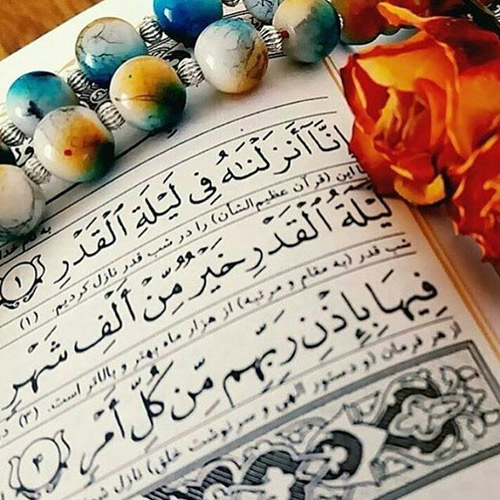 إِنَّآ أَنزَلْنَٰهُ فِى لَيْلَةِ ٱلْقَدْرِ ١
ما این (قرآن عظیم الشأن) را در شب قدر نازل کردیم. (۱)
لَيْلَةُ ٱلْقَدْرِ خَيْرٌ مِّنْ أَلْفِ شَهْرٍ
شب قدر (به مقام و مرتبه) از هزار ماه بهتر و بالاتر است. (۳)
فِيهَا بِإِذْنِ رَبِّهِم مِّن كُلِّ أَمْرٍ ۴
از هر فرمان (و دستور الهی و سرنوشت خلق) نازل